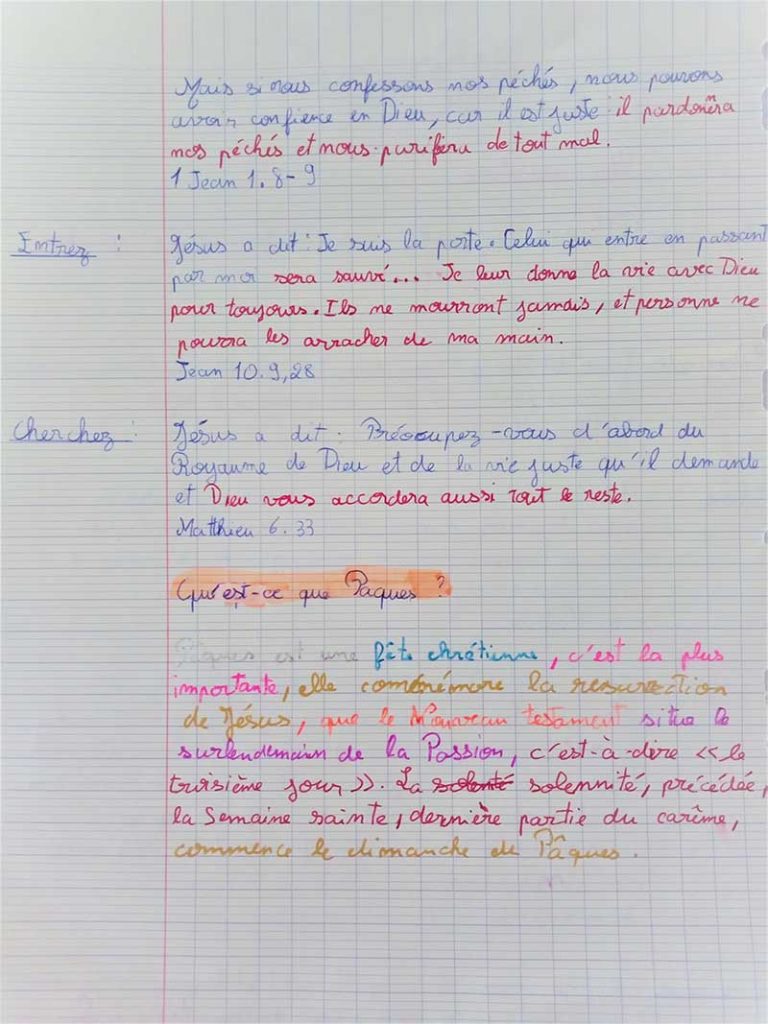 Mais si nous confessons nos péchés, nous pouvons
avoir confience en Dieu, car il est juste il pardonnera
nos péchés et nous purifira de tout mal.
1 Jean 1. 8-9
Entrez : Jésus a dit : Je suis la porte. Celui qui entre en passant
par moi sera sauvé... Je leur donne la vie avec Dieu
pour toujours. Ils ne mourront jamais, et personne ne
pourra les arracher de ma main.
Jean 10. 9,28
Cherchez : Jésus a dit : Préocupez-vous d'abord du
Royaume de Dieu et de la vie juste qu'il demande
et Dieu vous accordera aussi tout le reste.
Matthieu 6. 33
Qu'est-ce que Paques ?
Pâques est une fête chrétienne, c'est la plus
importante, elle commémore la resurrection
de Jésus, que le Nouveau testament situe le
surlendemain de la Passion, c'est-à-dire << le
troisième jour >>. La solenté solennité, précédée,
la Semaine sainte, dernière partie du carême,
commence le dimanche de Pâques.